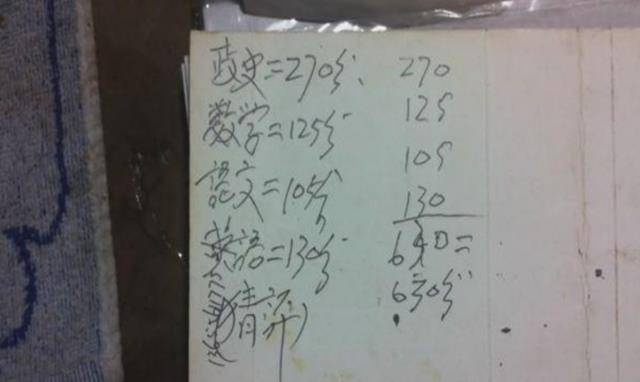 政史=270分、 270
数学=125分 125
語文=105分 105
英語=130分 130
630=
630分